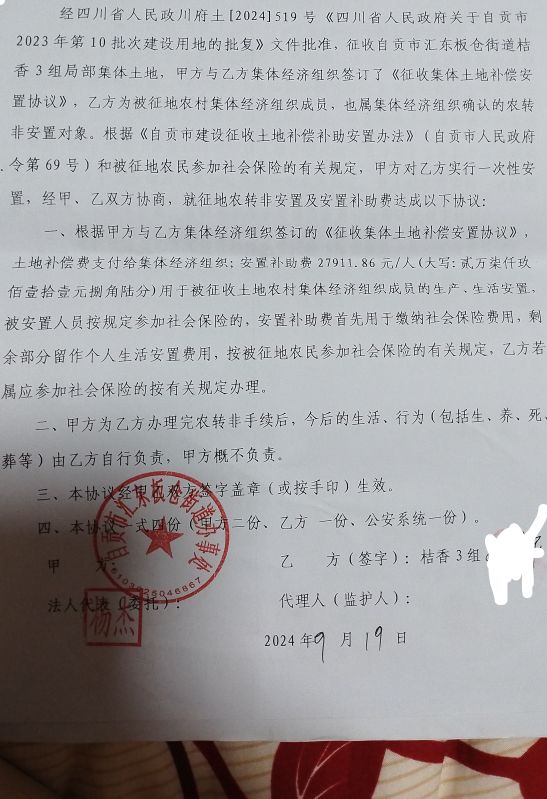 经四川省人民政川府土[2024]519号《四川省人民政府关于自贡市
2023年第10批次建设用地的批复》文件批准，征收自贡市汇东板仓街道桔
香3组局部集体土地，甲方与乙方集体经济组织签订了《征收集体土地补偿安
置协议》，乙方为被征地农村集体经济组织成员，也属集体经济组织确认的农转
非安置对象。根据《自贡市建设征收土地补偿补助安置办法》（自贡市人民政府
令第69号）和被征地农民参加社会保险的有关规定，甲方对乙方实行一次性安
置，经甲、乙双方协商，就征地农转非安置及安置补助费达成以下协议：
一、根据甲方与乙方集体经济组织签订的《征收集体土地补偿安置协议》，
土地补偿费支付给集体经济组织；安置补助费27911.86元/人(大写:贰万柒仟玖
佰壹拾壹元捌角陆分)用于被征收土地农村集体经济组织成员的生产、生活安置，
被安置人员按规定参加社会保险的，安置补助费首先用于缴纳社会保险费用，剩
余部分留作个人生活安置费用，按被征地农民参加社会保险的有关规定，乙方若
属应参加社会保险的按有关规定办理。
二、甲方为乙方办理完农转非手续后，今后的生活、行为（包括生、养、死、
葬等）由乙方自行负责，甲方概不负责。
三、本协议经甲乙双方签字盖章（或按手印）生效。
四、本协议一式四份（甲方二份、乙方 一份、公安系统一份）。
甲 方：
乙 方（签字）：桔香3组
自贡市汇东板仓街道办事处
5103025046867
法人代表（委托）：
代理人（监护人）：
杨杰
2024年9月19日